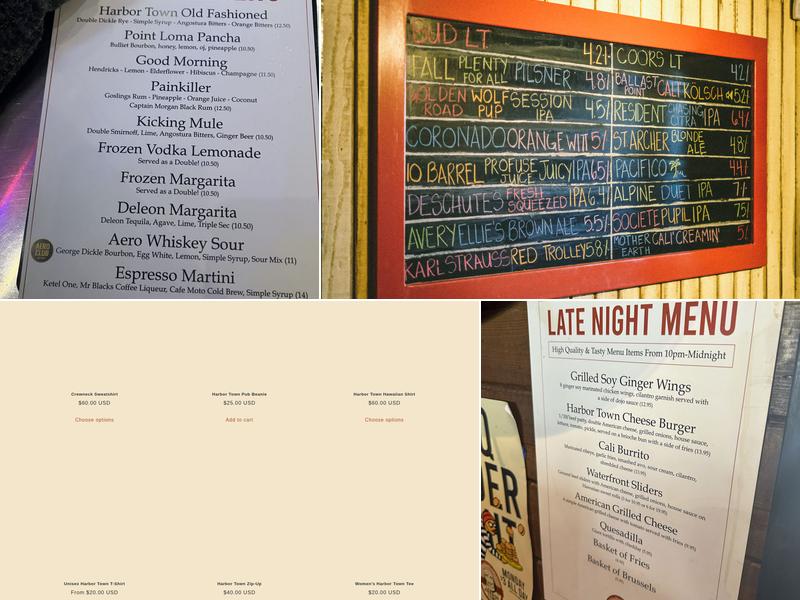 Harbor Town Old Fashioned
Double Dickle Rye - Simple Syrup - Angostura Bitters - Orange Bitters (12.50)
Point Loma Pancha
Bulliet Bourbon, honey, lemon, oj, pineapple (10.50)
Good Morning
Hendricks - Lemon - Elderflower - Hibiscus - Champagne (11.50)
Painkiller
Goslings Rum - Pineapple - Orange Juice - Coconut
Captain Morgan Black Rum (12.50)
Kicking Mule
Double Smirnoff, Lime, Angostura Bitters, Ginger Beer (10.50)
Frozen Vodka Lemonade
Served as a Double! (10.50)
Frozen Margarita
Served as a Double! (10.50)
Deleon Margarita
Deleon Tequila, Agave, Lime, Triple Sec (10.50)
Aero Whiskey Sour
AERO CLUB
George Dickle Bourbon, Egg White, Lemon, Simple Syrup, Sour Mix (11)
Espresso Martini
Ketel One, Mr Blacks Coffee Liqueur, Cafe Moto Cold Brew, Simple Syrup (14)
BUD LT 4.21
FALL PLENTY FOR ALL PILSNER 4.8/
GOLDEN ROAD WOLF PUP SESSION IPA 4.5/
CORONADO ORANGE WIT 5/
10 BARREL PROFUSE JUICE JUICY IPA 6.5/
DESCHUTES FRESH SQUEEZED IPA 6.4/
AVERY ELLIE'S BROWN ALE 5.5/
KARL STRAUSS RED TROLLEY 5.8/
COORS LT 4.2/
BALLAST POINT CALI KÖLSCH 5.2/
RESIDENT CHASING CITRA IPA 6.4/
ST ARCHER BLONDE ALE 4.8/
PACIFICO 4.4/
ALPINE DUET IPA 7/
SOCIETE PUPIL IPA 7.5/
MOTHER EARTH CALI CREAMIN' 5/
Crewneck Sweatshirt
$60.00 USD
Choose options
Harbor Town Pub Beanie
$25.00 USD
Add to cart
Harbor Town Hawaiian Shirt
$60.00 USD
Choose options
Unisex Harbor Town T-Shirt
From $20.00 USD
Harbor Town Zip-Up
$40.00 USD
Women's Harbor Town Tee
$20.00 USD
LATE NIGHT MENU
High Quality & Tasty Menu Items From 10pm-Midnight
Grilled Soy Ginger Wings
8 ginger soy marinated chicken wings, cilantro garnish served with
a side of dojo sauce (12.95)
Harbor Town Cheese Burger
1/3lb beef patty, double American cheese, grilled onions, house sauce,
lettuce, tomato, pickle, served on a brioche bun with a side of fries (13.95)
Cali Burrito
Marinated ribeye, garlic fries, smashed avo, sour cream, cilantro,
shredded cheese (13.95)
Waterfront Sliders
Ground beef sliders with American cheese, grilled onions, house sauce on
American Grilled Cheese
A simple American grilled cheese with tomato served with fries (9.95)
Quesadilla
Basket of Fries
Basket of Brussels
MONDAY
ALL DAY